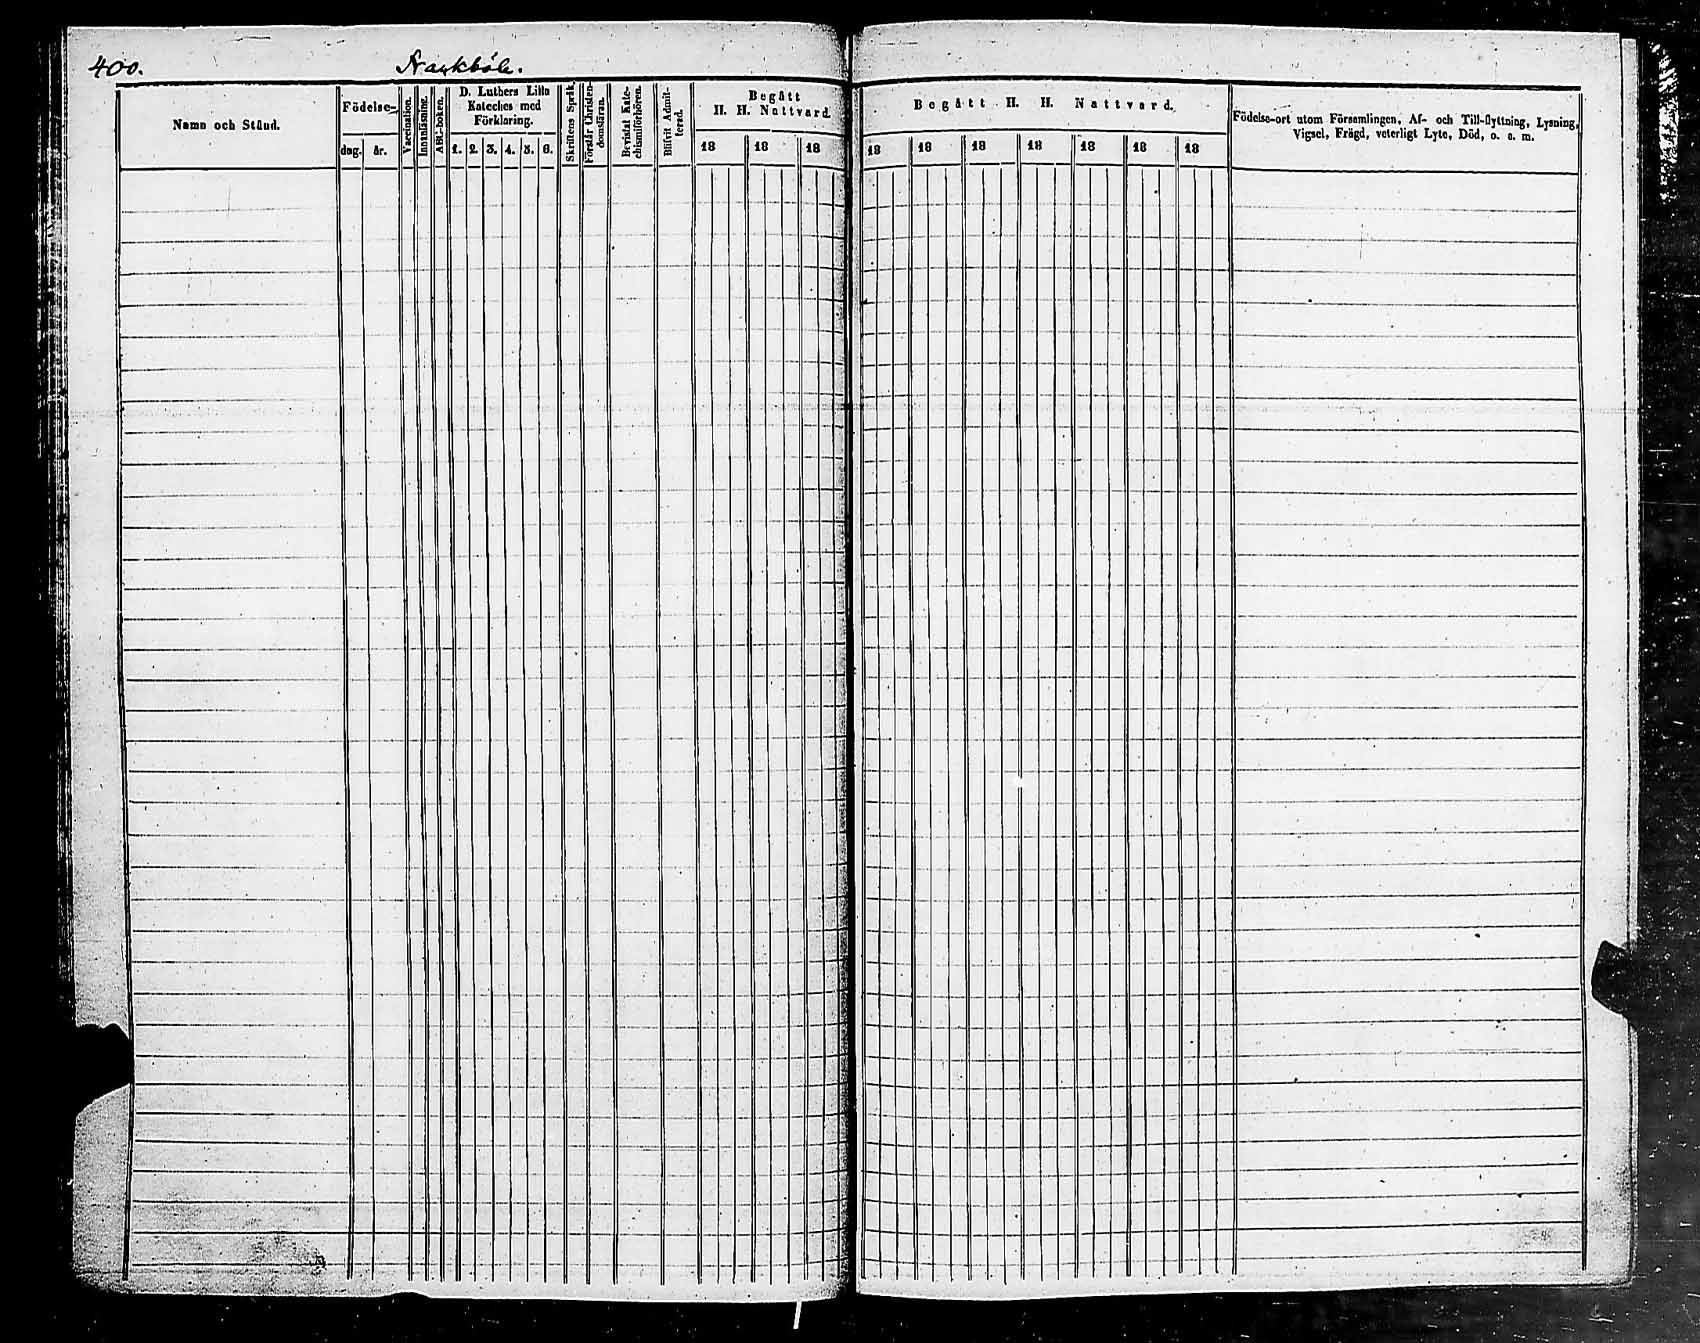 400. Narkböle.
Namn och Stånd.
Födelse-
dag. år.
Vaccination.
Innanläsning.
ABC-boken.
D. Luthers Lilla
Kateches med
Förklaring.
1. 2. 3. 4. 5. 6.
Skriftens Språk
Förstår Christen-
domsläran.
Bevistat Kate-
chismiförhören.
Blifvit Admit-
terad.
Begått
H. H. Nattvard.
18 18 18
Begått H. H. Nattvard.
18 18 18 18 18 18 18
Födelse-ort utom Församlingen, Af- och Till-flyttning, Lysning,
Vigsel, Frägd, veterligt Lyte, Död, o. s. m.